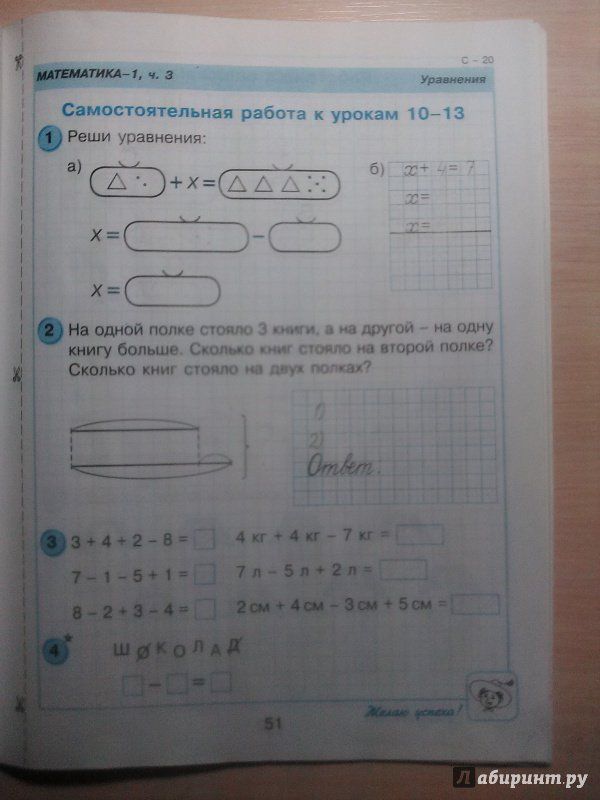 С – 20
МАТЕМАТИКА–1, ч. 3
Уравнения
Самостоятельная работа к урокам 10–13
1 Реши уравнения:
а) + x =
б) x + 4 = 7
x =
x =
x = –
x =
2 На одной полке стояло 3 книги, а на другой – на одну
книгу больше. Сколько книг стояло на второй полке?
Сколько книг стояло на двух полках?
1)
2)
Ответ:
3 3 + 4 + 2 – 8 = 4 кг + 4 кг – 7 кг =
7 – 1 – 5 + 1 = 7 л – 5 л + 2 л =
8 – 2 + 3 – 4 = 2 см + 4 см – 3 см + 5 см =
4* ШОКОЛАД
– =
Желаю успеха!
51
Лабиринт.ру